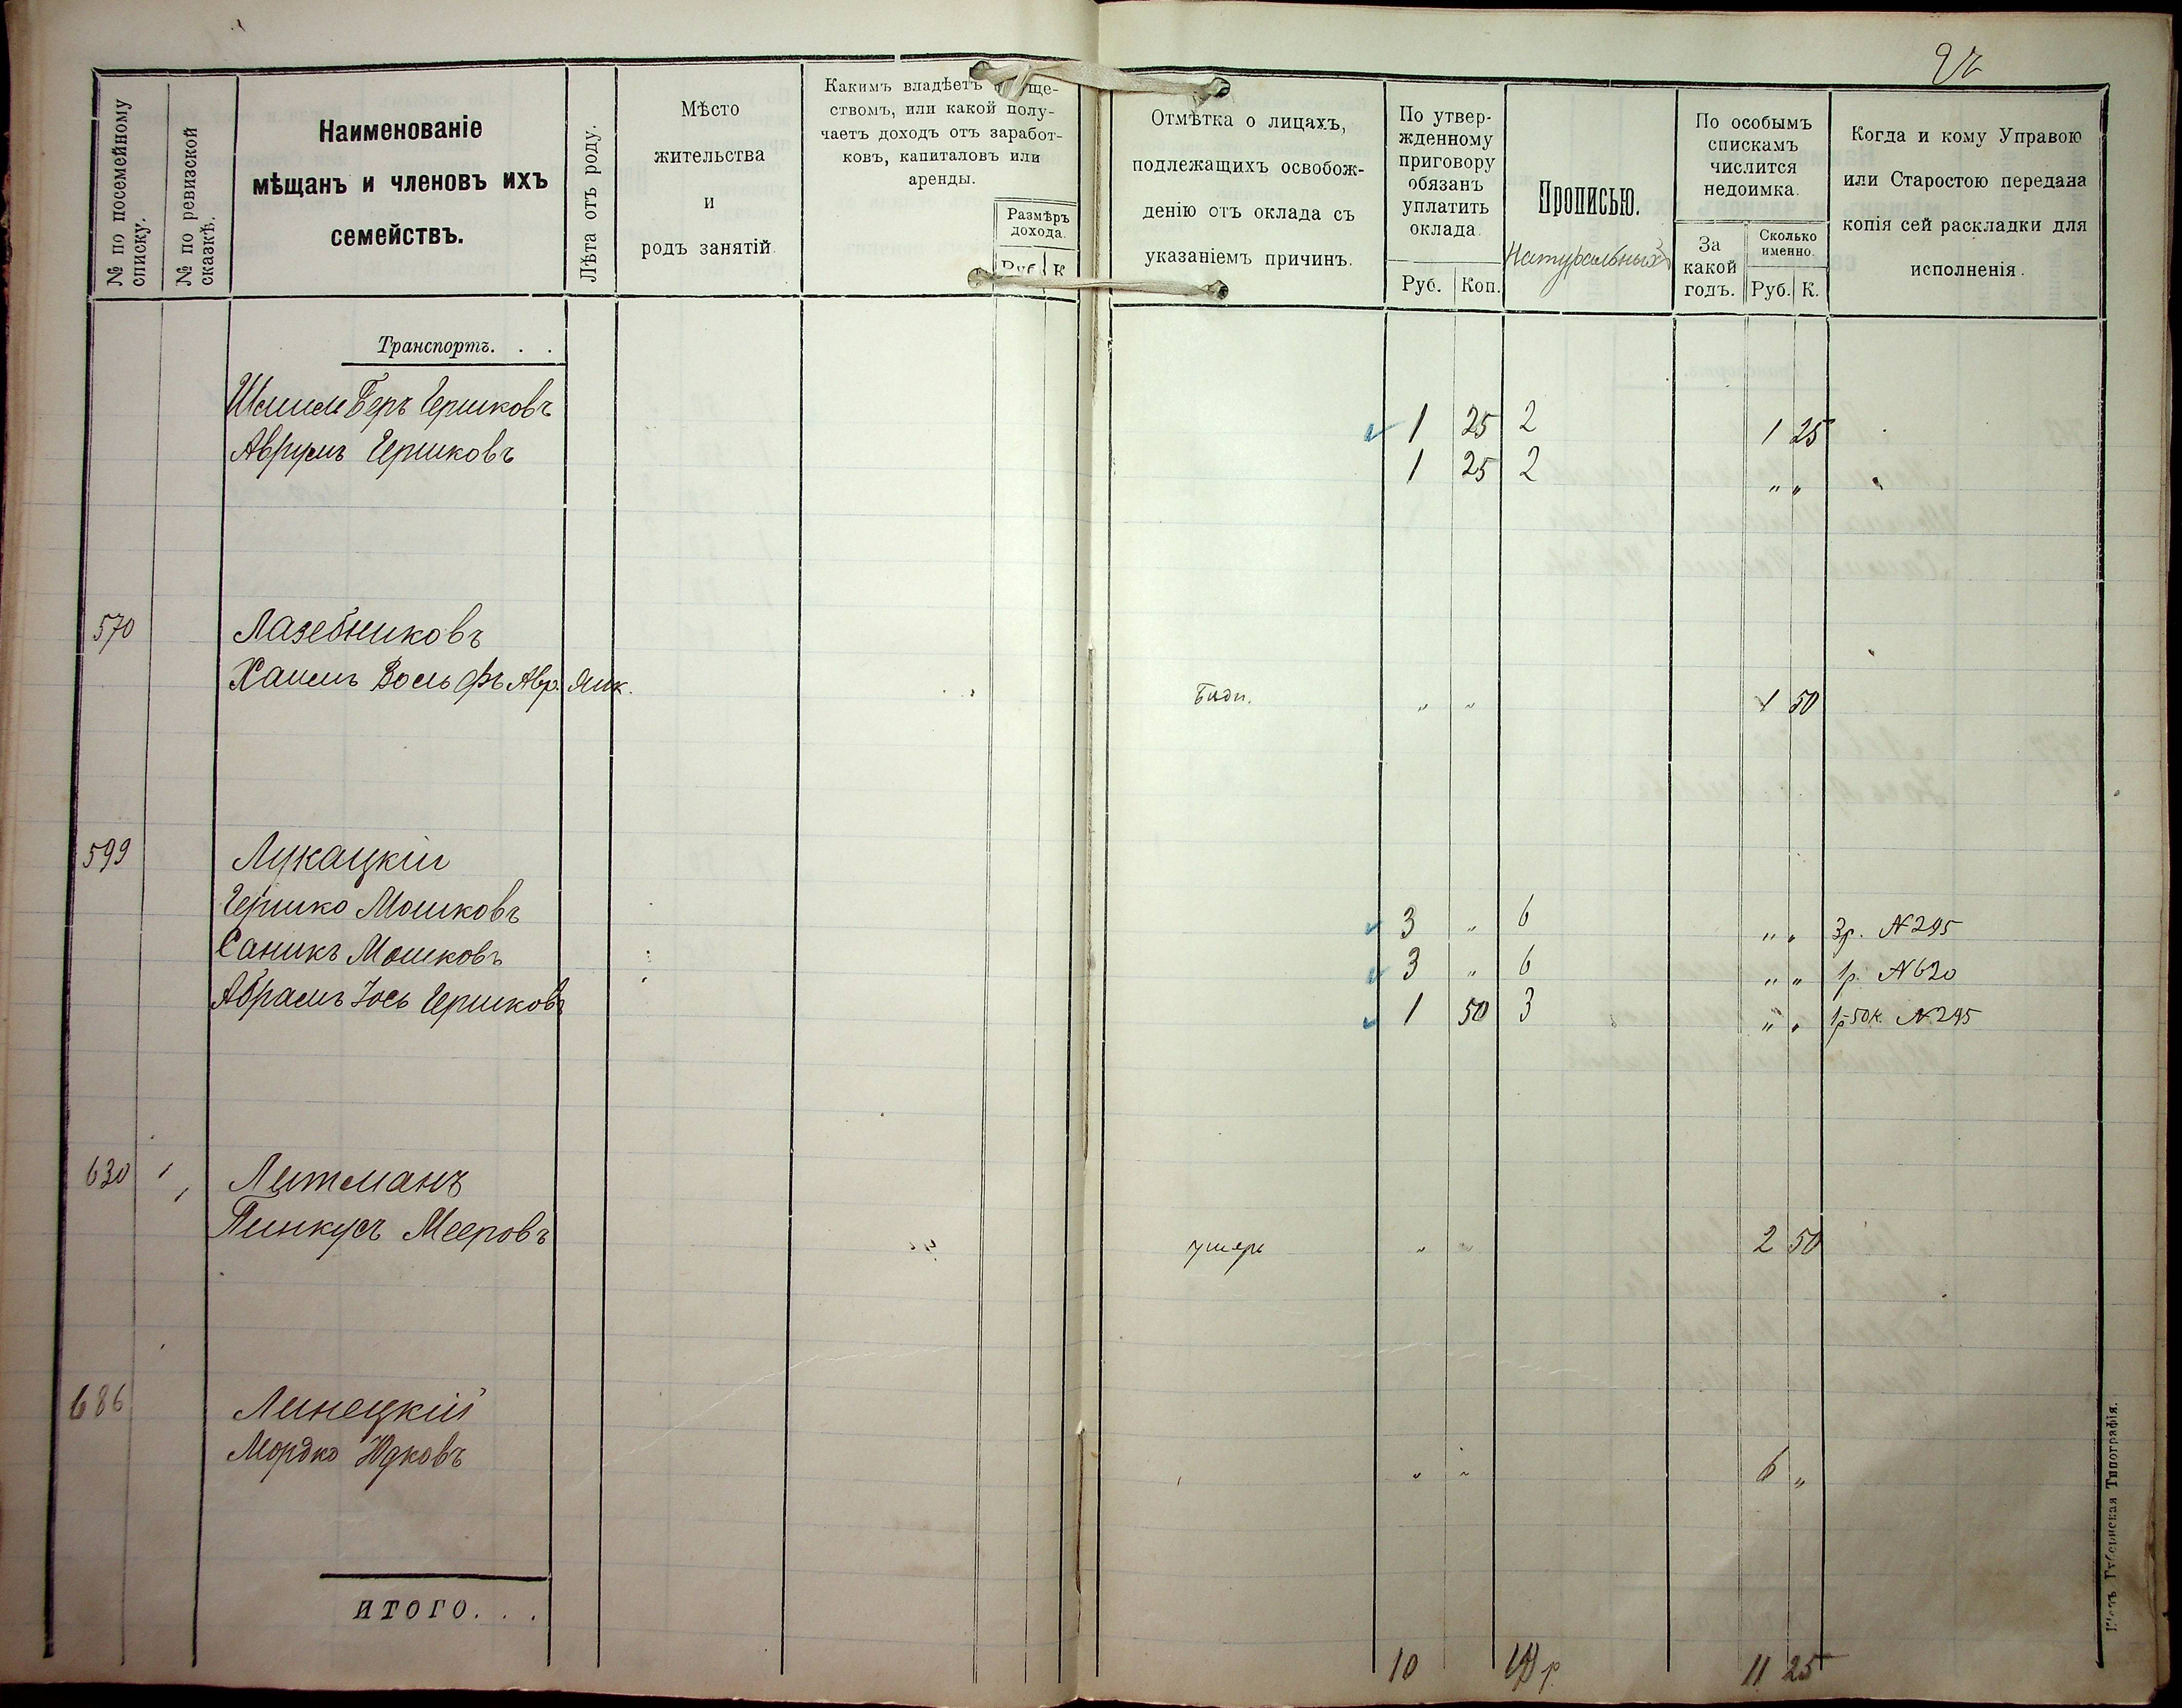 92
№ по посемейному списку.
№ по ревизской сказкѣ.
Наименованіе
мѣщанъ и членовъ ихъ
семействъ.
Лѣта отъ роду.
Мѣсто
жительства
и
родъ занятій
Какимъ владѣетъ ще-
ствомъ, или какой полу-
чаетъ доходъ отъ заработ-
ковъ, капиталовъ или
аренды.
Размѣръ
дохода.
Руб. К
Отмѣтка о лицахъ,
подлежащихъ освобож-
денію отъ оклада съ
указаніемъ причинъ.
По утвер-
жденному
приговору
обязанъ
уплатить
оклада
Руб. Коп.
Прописью.
Натуральныхъ
По особымъ
спискамъ
числится
недоимка.
За
какой
годъ.
Сколько
именно.
Руб. К.
Когда и кому Управою
или Старостою передана
копія сей раскладки для
исполненія.
Транспортъ. . .
Беръ Гершковъ 1 25 2 1 25
Аврумъ Гершковъ 1 25 2 " "
570 Лазебниковъ
Хаимъ Вольфъ Авр. Янк. " " 1 50
599 Лукацкій
Гершко Мошковъ 3 " 6 " " 3р. №295
Саникъ Мошковъ 3 " 6 " " 1р. №620
Абрамъ Іось Гершковъ 1 50 3 " " 1р 50к. №295
630 Литманъ
Пинкусъ Мееровъ умеръ " " 2 50
686 Линецкій
Мордко Юдковъ " " 6 "
ИТОГО. . .
10 11 25
Губернская Типографія.